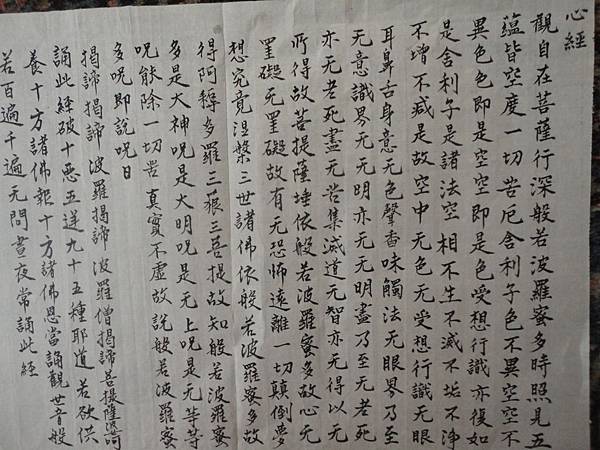 心經
觀自在菩薩行深般若波羅蜜多時照見五
蘊皆空度一切苦厄舍利子色不異空空不
異色色即是空空即是色受想行識亦復如
是舍利子是諸法空相不生不滅不垢不淨
不增不减是故空中无色无受想行識无眼
耳鼻舌身意无色聲香味觸法无眼界乃至
无意識界无无明亦无无明盡乃至无老死
亦无老死盡无苦集滅道无智亦无得以无
所得故菩提薩埵依般若波羅蜜多故心无
罣礙无罣礙故有无恐怖遠離一切顛倒夢
想究竟涅槃三世諸佛依般若波羅蜜多故
得阿耨多羅三藐三菩提故知般若波羅蜜
多是大神呪是大明呪是无上呪是无等等
呪能除一切苦真實不虛故說般若波羅蜜
多呪即說呪曰
揭諦揭諦波羅揭諦波羅僧揭諦菩提薩婆訶
誦此經破十惡五逆九十五種耶道若欲供
養十方諸佛報十方諸佛恩當誦觀世音般
若百遍千遍无問晝夜常誦此經